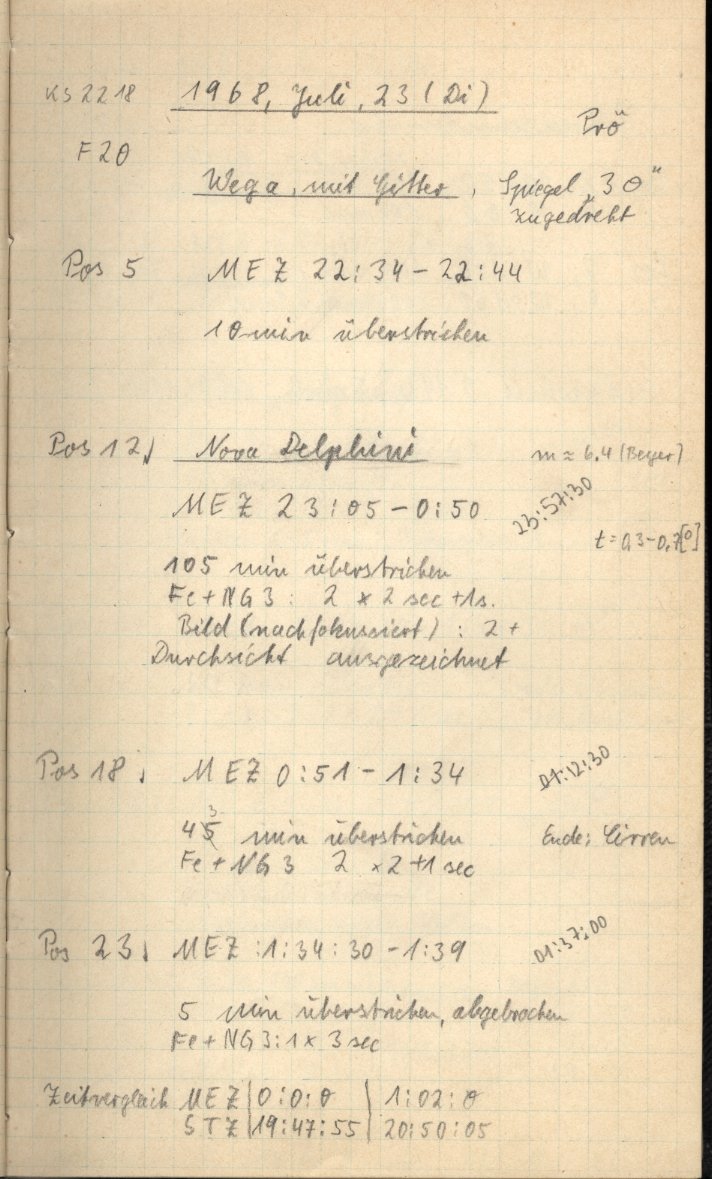 KS 2218 1968, Juli, 23 (Di)
Prö
F20
Wega, mit Gitter, Spiegel „30“
zugedreht
Pos 5 MEZ 22:34 - 22:44
10 min überstrichen
Pos 12 Nova Delphini m ≈ 6.4 (Beyer)
MEZ 23:05 - 0:50 23:57:30
t = 0,3-0,7[°]
105 min überstrichen
Fe + NG3 : 2 x 2 sec + 1s.
Bild (nachfokussiert) : 2+
Durchsicht ausgezeichnet
Pos 18 MEZ 0:51 - 1:34 01:12:30
3
45 min überstrichen Ende: Cirren
Fe + NG 3 2 x 2 + 1 sec
Pos 23 MEZ : 1:34:30 - 1:39 01:37:00
5 min überstrichen, abgebrochen
Fe + NG 3 : 1 x 3 sec
Zeitvergleich MEZ | 0:0:0 | 1:02:0
STZ | 19:47:55 | 20:50:05